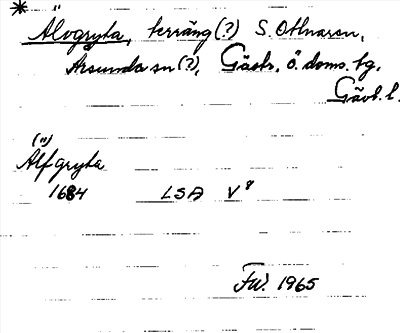 * Älvgryta, terräng (?) S. Ottnaren,
Årsunda sn (?), Gästr. ö. doms. tg.
Gävl. l.
(")
Alfgryta
1684 LSA V⁸
FW. 1965